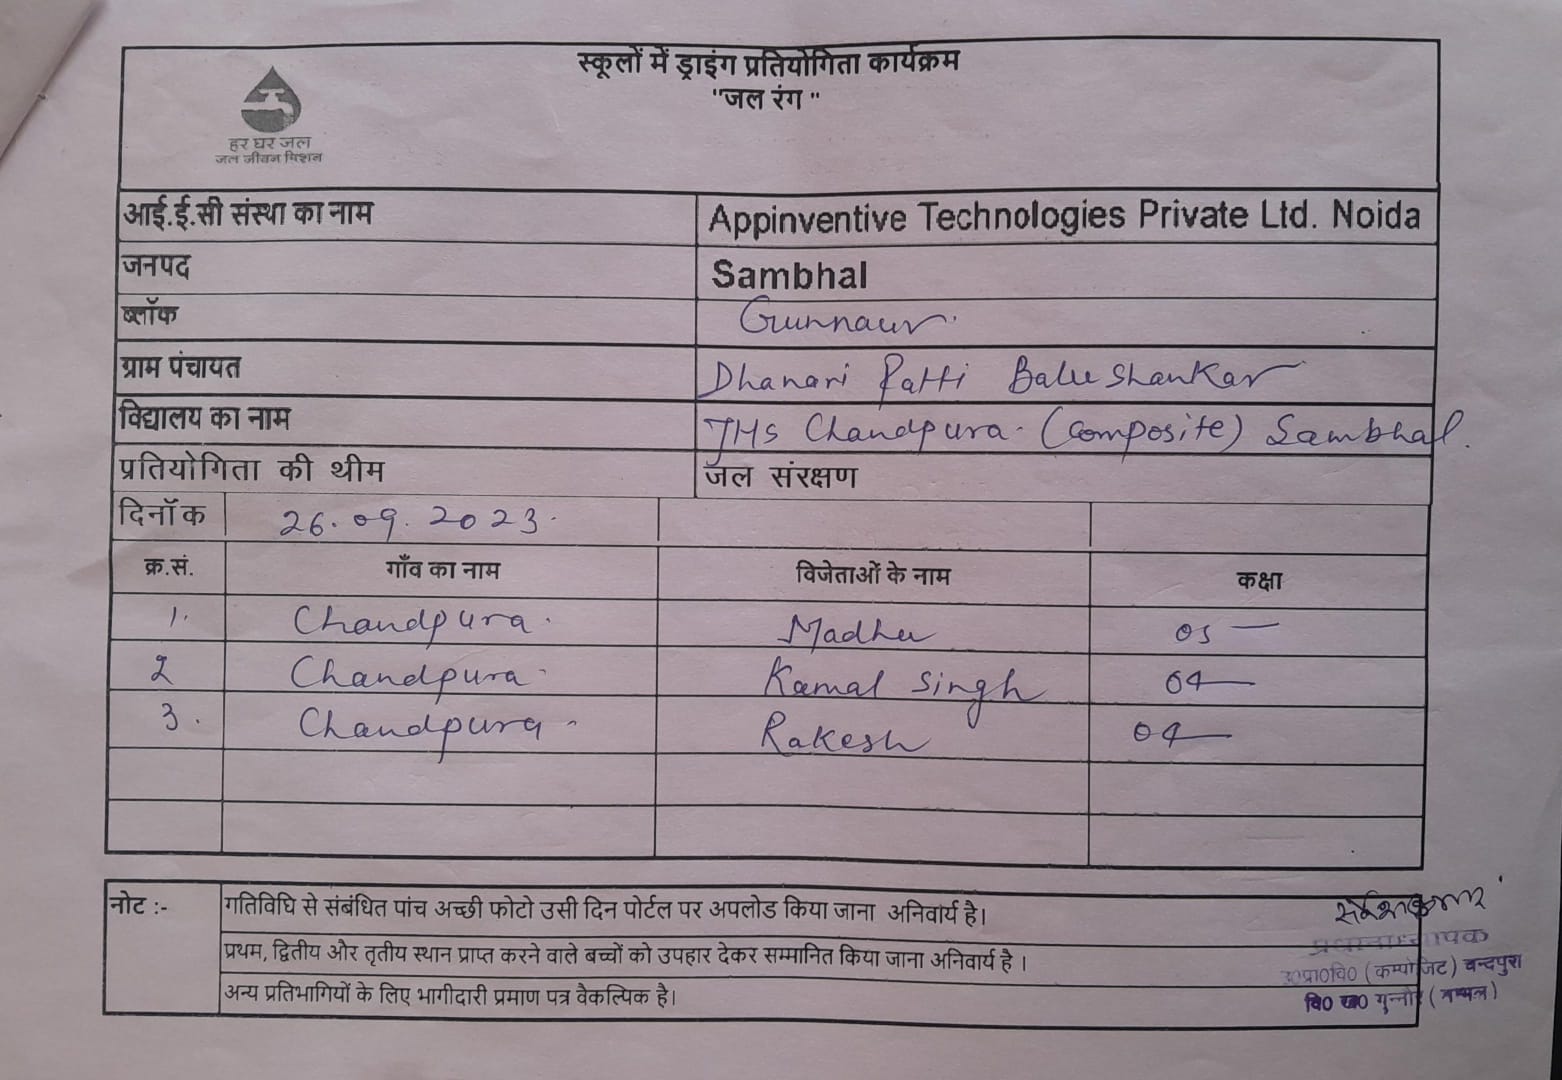 स्कूलों में ड्राइंग प्रतियोगिता कार्यक्रम
"जल रंग "
हर घर जल
जल जीवन मिशन
आई.ई.सी संस्था का नाम Appinventive Technologies Private Ltd. Noida
जनपद Sambhal
ब्लॉक Gunnaur.
ग्राम पंचायत Dhanari Patti Balu Shankar
विद्यालय का नाम JHS Chandpura. (Composite) Sambhal.
प्रतियोगिता की थीम जल संरक्षण
दिनॉक 26.09.2023.
क्र.सं. गाँव का नाम विजेताओं के नाम कक्षा
1. Chandpura. Madhu 05 —
2 Chandpura. Kamal Singh 04 —
3. Chandpura - Rakesh 04 —
नोट :- गतिविधि से संबंधित पांच अच्छी फोटो उसी दिन पोर्टल पर अपलोड किया जाना अनिवार्य है।
प्रथम, द्वितीय और तृतीय स्थान प्राप्त करने वाले बच्चों को उपहार देकर सम्मानित किया जाना अनिवार्य है ।
अन्य प्रतिभागियों के लिए भागीदारी प्रमाण पत्र वैकल्पिक है।
प्रधानाध्यापक
उ०प्रा०वि० (कम्पोजिट) चन्दपुरा
वि० ख० गुन्नौर (सम्भल)